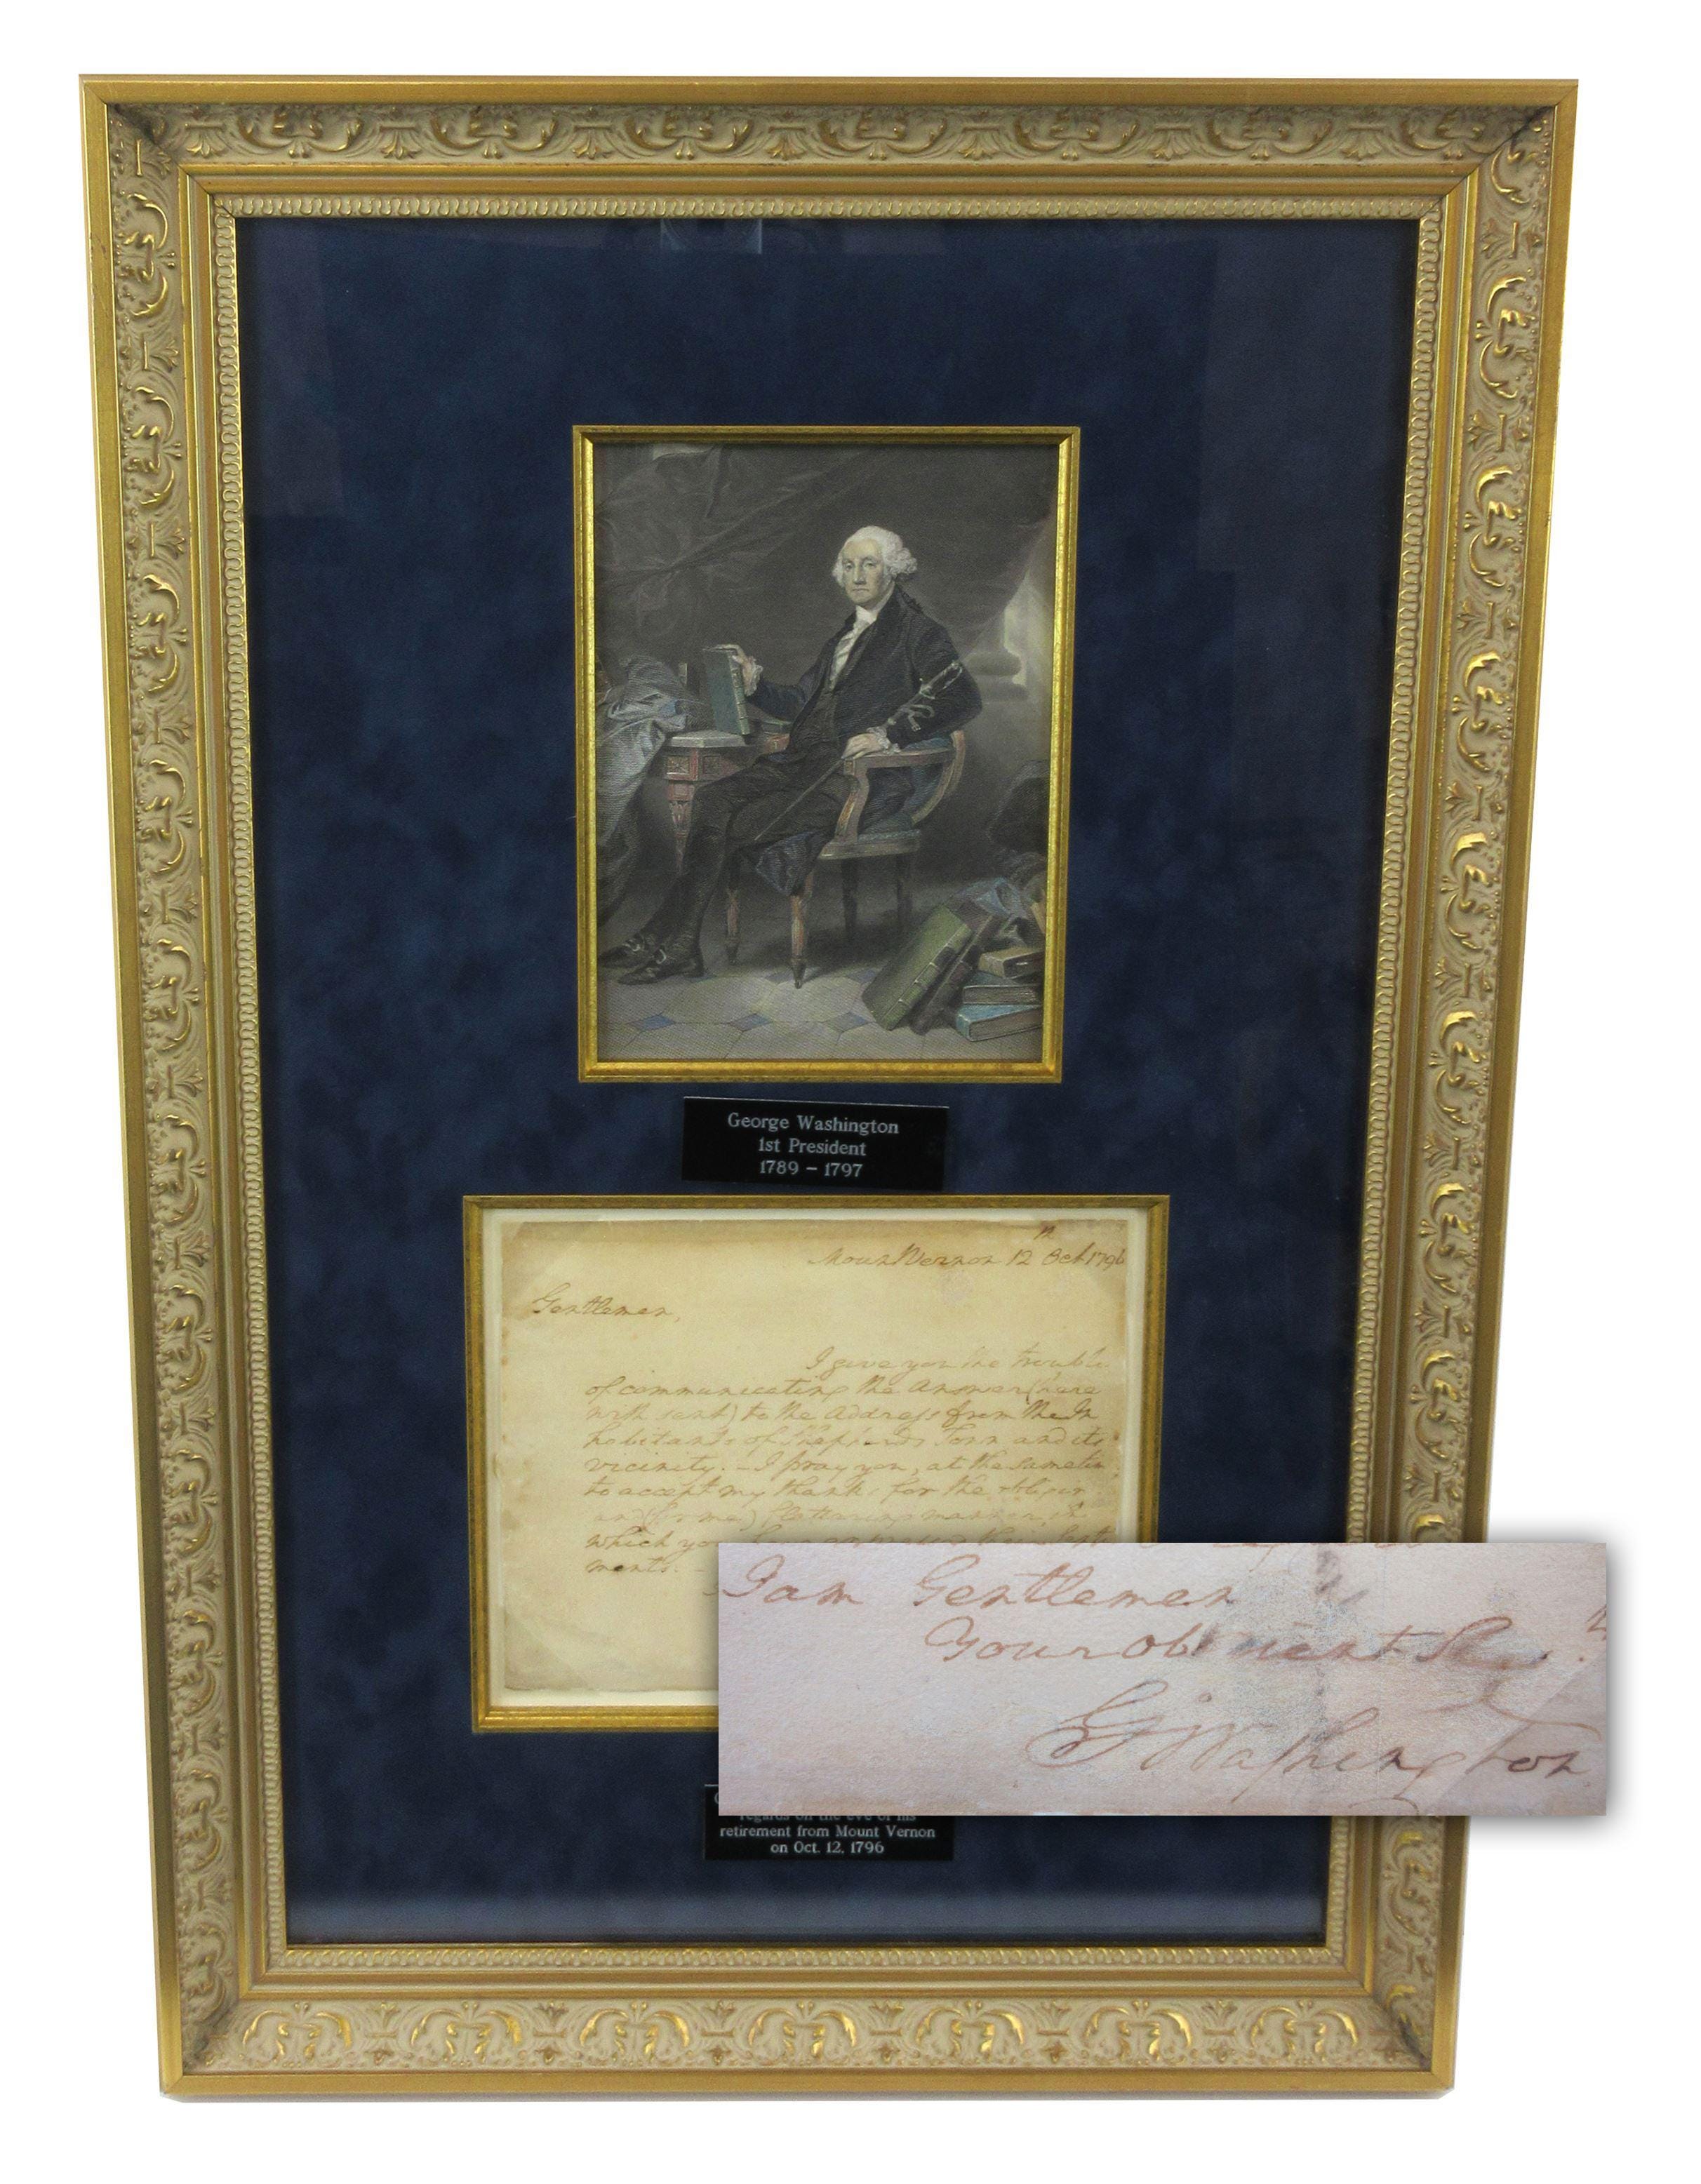 George Washington
1st President
1789 – 1797
Mount Vernon 12th Oct 1796
Gentlemen,
I give you the trouble
of communicating the Answer (here
with sent) to the Address from the In
habitants of Shepherds Town and its
vicinity. – I pray you, at the same tim
to accept my thanks for the
and (to me) flattering manner in
which you have
ments. –
I am Gentlemen
Your Obedient Ser.t
G:Washington
regards on the eve of his
retirement from Mount Vernon
on Oct. 12, 1796